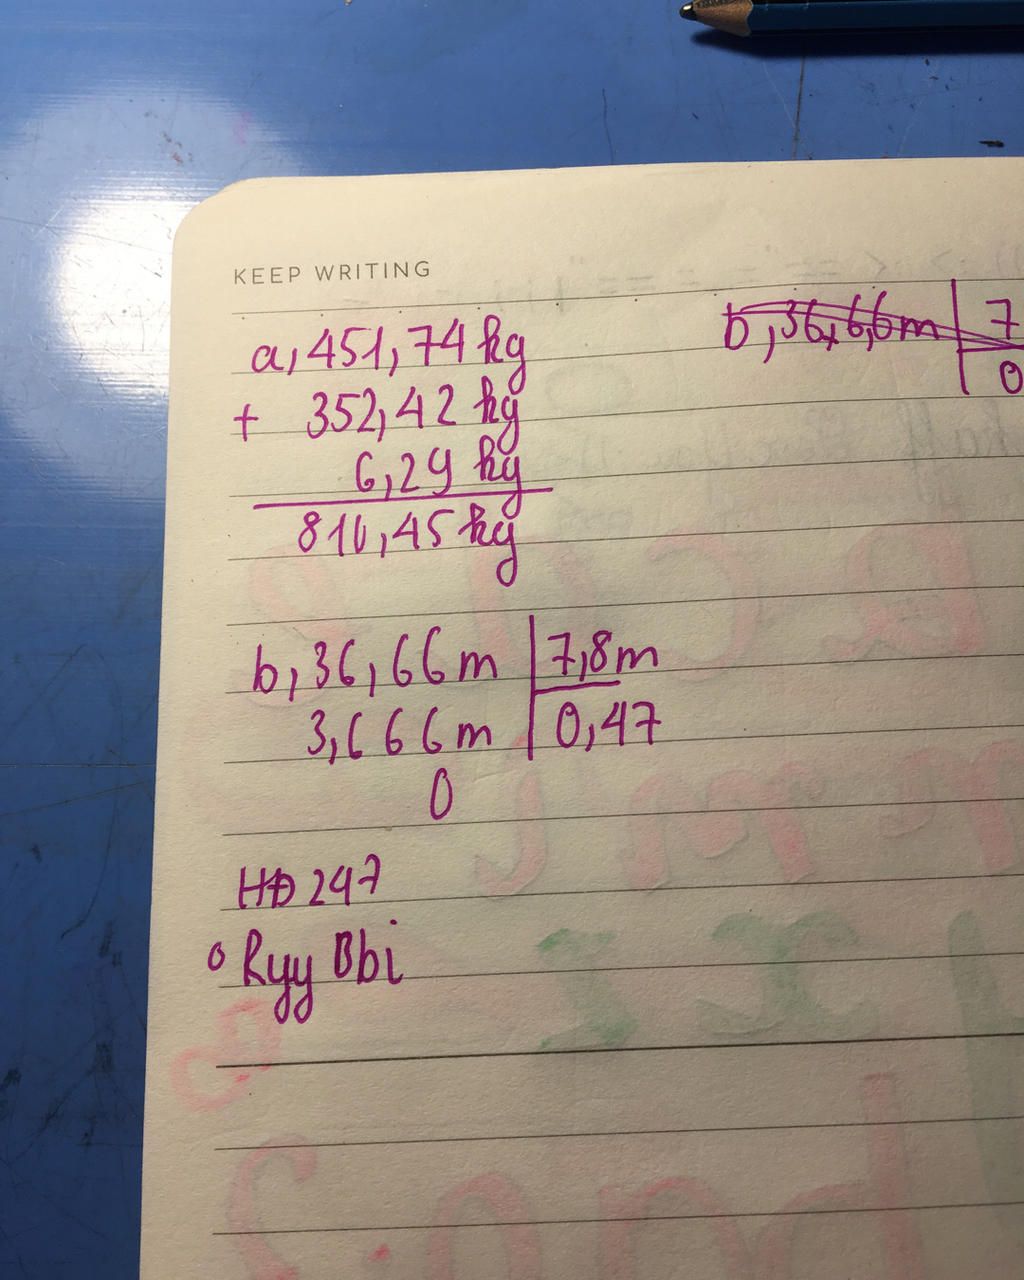 KEEP WRITING
a, 451,74 kg
+ 352,42 kg
6,29 kg
810,45 kg
b, 36,66m 7,8m
3,666m 0,47
0
HĐ 247
Ryy Bbi
b, 36,6,6m 7
0